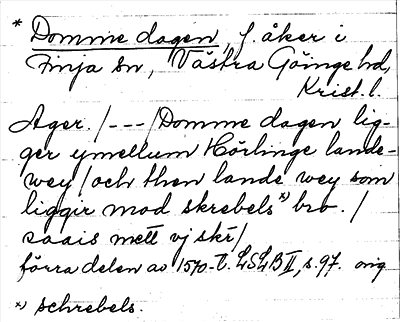 * Domme dagen, f. åker i
Finja sn, Västra Göinge hd,
Krist. l.
Ager. /---/ Domme dagen lig-
ger ymellum Hörlinge lande-
wey / och then lande wey som
liggir mod skrebels *) bro. /
saais mett vj skr /
förra delen av 1570-t. LSLB II, s. 97. orig
*) schrebels.